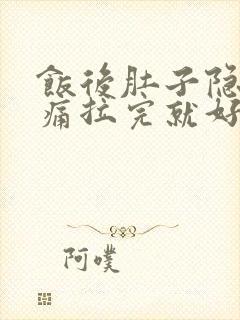 飯後肚子隐
痛拉完就好
阿噗